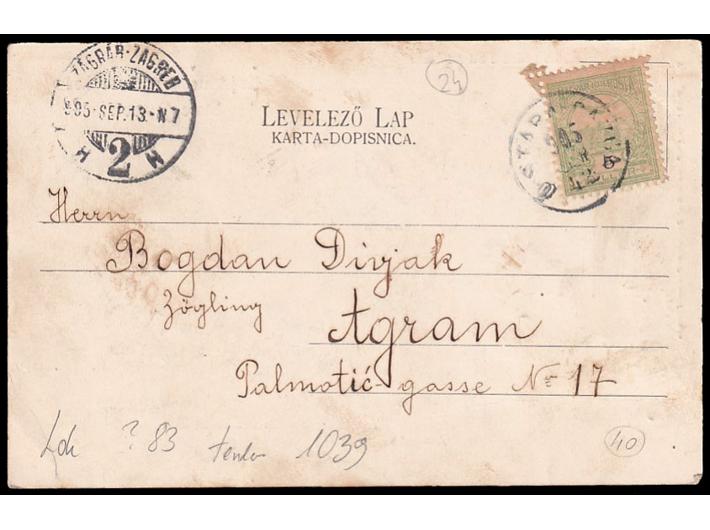 ZÁGRÁB-ZAGREB
905-SEP.13-N7
2
24
LEVELEZŐ LAP
KARTA-DOPISNICA.
STARA PAZUA
905
5
Herrn
Bogdan Divjak
Zögling
Agram
Palmotić-gasse No 17
? 83
1039
40